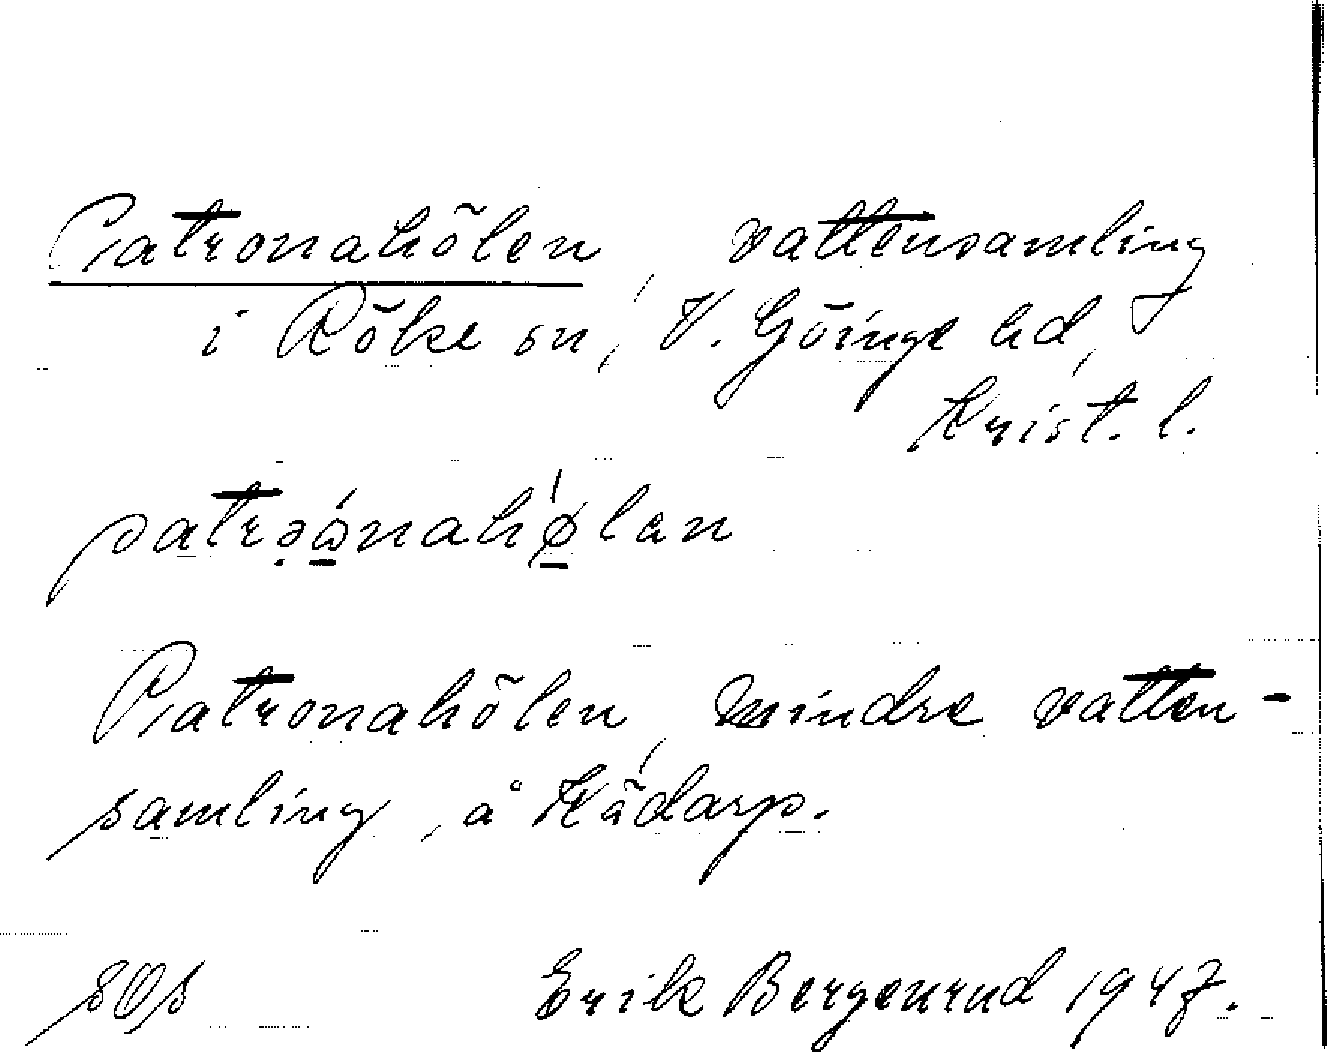 Patronahölen, vattensamling
i Röke sn, V. Göinge hd,
Krist. l.
Patronahölen, mindre vatten-
samling, å Kädarp.
Erik Bergenrud 1947.